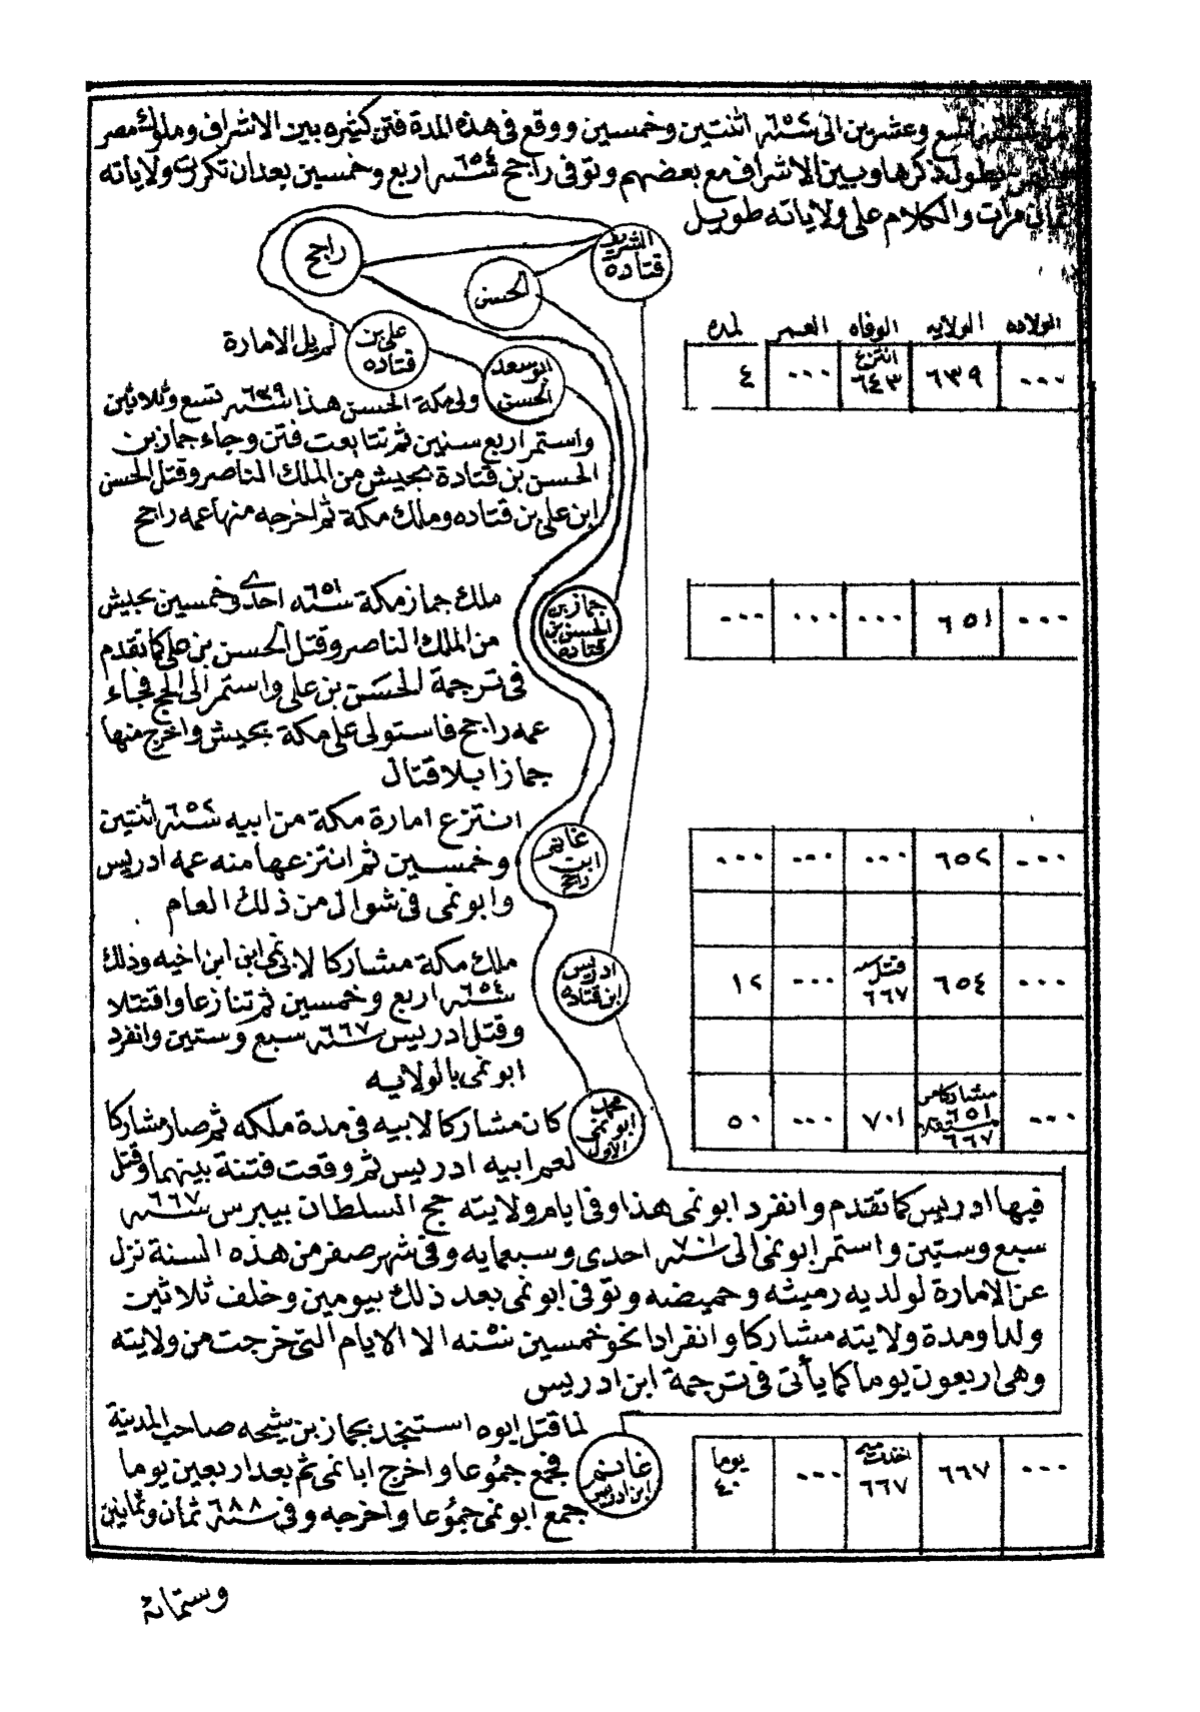 وعشرين الى سنة ٦٥٢ اثنتين وخمسين ووقع فى هذه المدة فتن كثيره بين الاشراف وملوك مصر
يطول ذكرها وبين الاشراف مع بعضهم وتوفى راجح سنة ٦٥٤ اربع وخمسين بعد ان تكررت ولاياته
ثمان مرات والكلام على ولاياته طويل
الشريف قتاده
راجح
الحسن
على بن قتاده
لم يل الامارة
ابو سعد الحسن
الولاده الولايه الوفاه العمر لمده
... ٦٣٩ انتزع ٦٤٣ ... ٤
ولى مكة الحسن هذا سنة ٦٣٩ تسع وثلاثين
واستمر اربع سنين ثم تتابعت فتن وجاء جماز بن
الحسن بن قتادة بجيش من الملك الناصر وقتل الحسن
ابن على بن قتاده وملك مكة ثم اخرجه منها عمه راجح
جماز بن الحسن بن قتاده
... ٦٥١ ... ... ...
ملك جماز مكة سنة ٦٥١ احدى وخمسين بجيش
من الملك الناصر وقتل الحسن بن على كما تقدم
فى ترجمة الحسن بن على واستمر الى الحج فجاء
عمه راجح فاستولى على مكة بجيش واخرج منها
جمازا بلا قتال
غانم ابن راجح
... ٦٥٢ ... ... ...
انتزع امارة مكة من ابيه سنة ٦٥٢ اثنتين
وخمسين ثم انتزعها منه عمه ادريس
وابو نمى فى شوال من ذلك العام
ادريس ابن قتاده
... ٦٥٤ قتل ٦٦٧ ... ١٢
ملك مكة مشاركا لابى نمى ابن ابن اخيه وذلك
سنة ٦٥٤ اربع وخمسين ثم تنازعا واقتتلا
وقتل ادريس سنة ٦٦٧ سبع وستين وانفرد
ابو نمى بالولايه
محمد ابو نمى الاول
... مشاركا من ٦٥١ مستقلا ٦٦٧ ٧٠١ ... ٥٠
كان مشاركا لابيه فى مدة ملكه ثم صار مشاركا
لعم ابيه ادريس ثم وقعت فتنة بينهما وقتل
فيها ادريس كما تقدم وانفرد ابو نمى هذا وفى ايام ولايته حج السلطان بيبرس سنة ٦٦٧
سبع وستين واستمر ابو نمى الى سنة ٧٠١ احدى وسبعمايه وفى شهر صفر من هذه السنة نزل
عن الامارة لولديه رميثه وحميضه وتوفى ابو نمى بعد ذلك بيومين وخلف ثلاثين
ولدا ومدة ولايته مشاركا وانفرادا نحو خمسين سنه الا الايام التى خرجت من ولايته
وهى اربعون يوما كما يأتى فى ترجمة ابن ادريس
غانم ابن ادريس
... ٦٦٧ اخذت منه ٦٦٧ ... يوما ٤٠
لما قتل ابوه استنجد بجماز بن شيحه صاحب المدينة
فجمع جموعا واخرج ابا نمى ثم بعد اربعين يوما
جمع ابو نمى جموعا واخرجه وفى سنة ٦٨٨ ثمان وثمانين
وستمائة